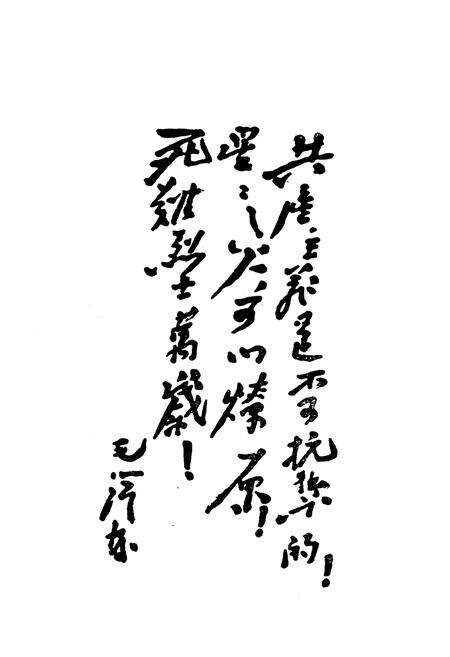 共產主義是不可抗禦的！
星〻之火可以燎原！
死難烈士萬歲！
毛澤東